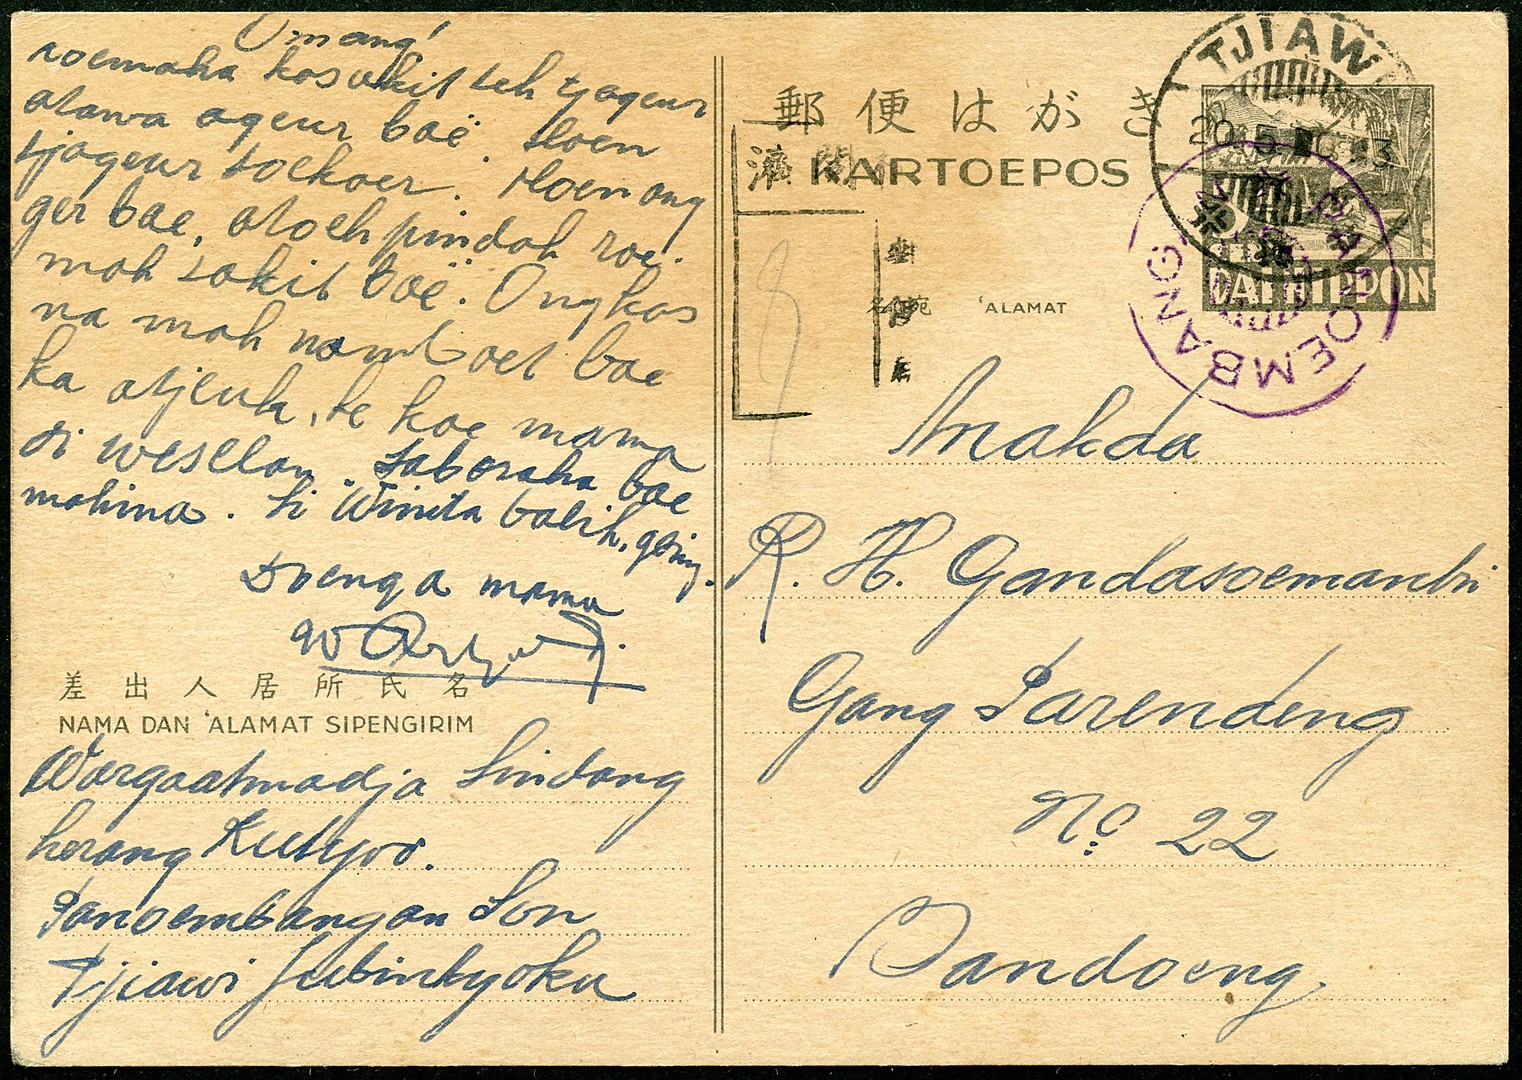 Omang!
roemaha kasakit teh tjageur
atawa ageur baé. Hoen
tjageur
ger bae, atoeh pindah roe.
mah sakit baé. Ongkos
na mah bae
ka atjeuk, te koe mama
di weselan. Saboraha bae
mahina. Si Winita balik,
Doenga mama
差出人居所氏名
NAMA DAN 'ALAMAT SIPENGIRIM
Wargaatmadja Sindang
herang
Panoembangan Son
Tjiawi Jubinkyoku
郵便はがき
KARTOEPOS
濟閲
名宛 'ALAMAT
TJIAWI
20.5.
PANOEMBANGAN
DAI NIPPON
Anakda
R. H. Gandasoemantri
Gang Parendeng
No 22
Bandoeng